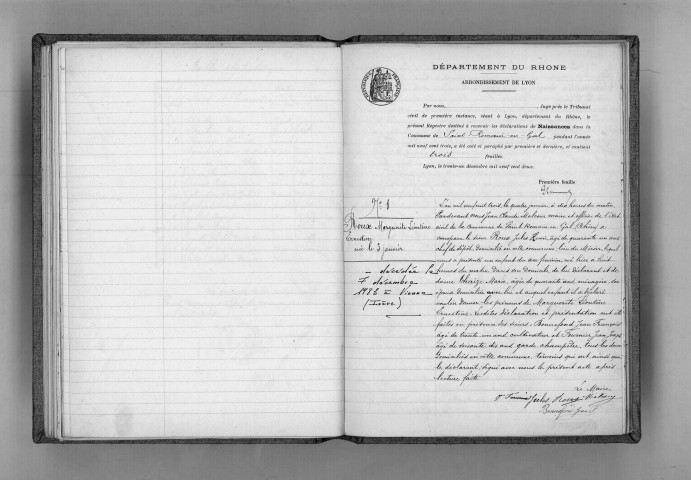 DÉPARTEMENT DU RHONE
ARRONDISSEMENT DE LYON
Par nous, Juge près le Tribunal
civil de première instance, séant à Lyon, département du Rhône, le
présent Registre destiné à recevoir les déclarations de Naissances dans la
Commune de Saint Romain-en-Gal, pendant l'année
mil neuf cent trois, a été coté et paraphé par première et dernière, et contient
trois feuilles.
Lyon, le trente-un décembre mil neuf cent deux.
Première feuille
N° 1
Roux Marguerite Léontine
née le 3 janvier
décédée le
7 décembre
1986 à Vienne
(Isère)
L'an mil neuf cent trois, le quatre janvier, à dix heures du matin
Pardevant nous Jean Claude maire et officier de l'état
civil de la commune de Saint Romain en Gal, Rhône, a
comparu le sieur Roux Jules Henri, âgé de quarante un ans
chef de dépôt, domicilié en cette commune, lieu du lequel
nous a présenté un enfant du sexe féminin, né hier à huit
heures du matin, dans son domicile, de lui déclarant et de
dame Marie, âgée de quarante ans, ménagère, son
épouse domiciliée avec lui et auquel enfant il a déclaré
vouloir donner les prénoms de Marguerite Léontine
Ernestine. Lesdites déclaration et présentation ont été
faites en présence des sieurs: Bonnefond Jean François
âgé de trente un ans cultivateur et Fournier Jean
âgé de soixante dix ans garde champêtre, tous les deux
domiciliés en cette commune, témoins qui ont ainsi que
le déclarant, signé avec nous le présent acte après
lecture faite.
Le Maire
Jules Roux